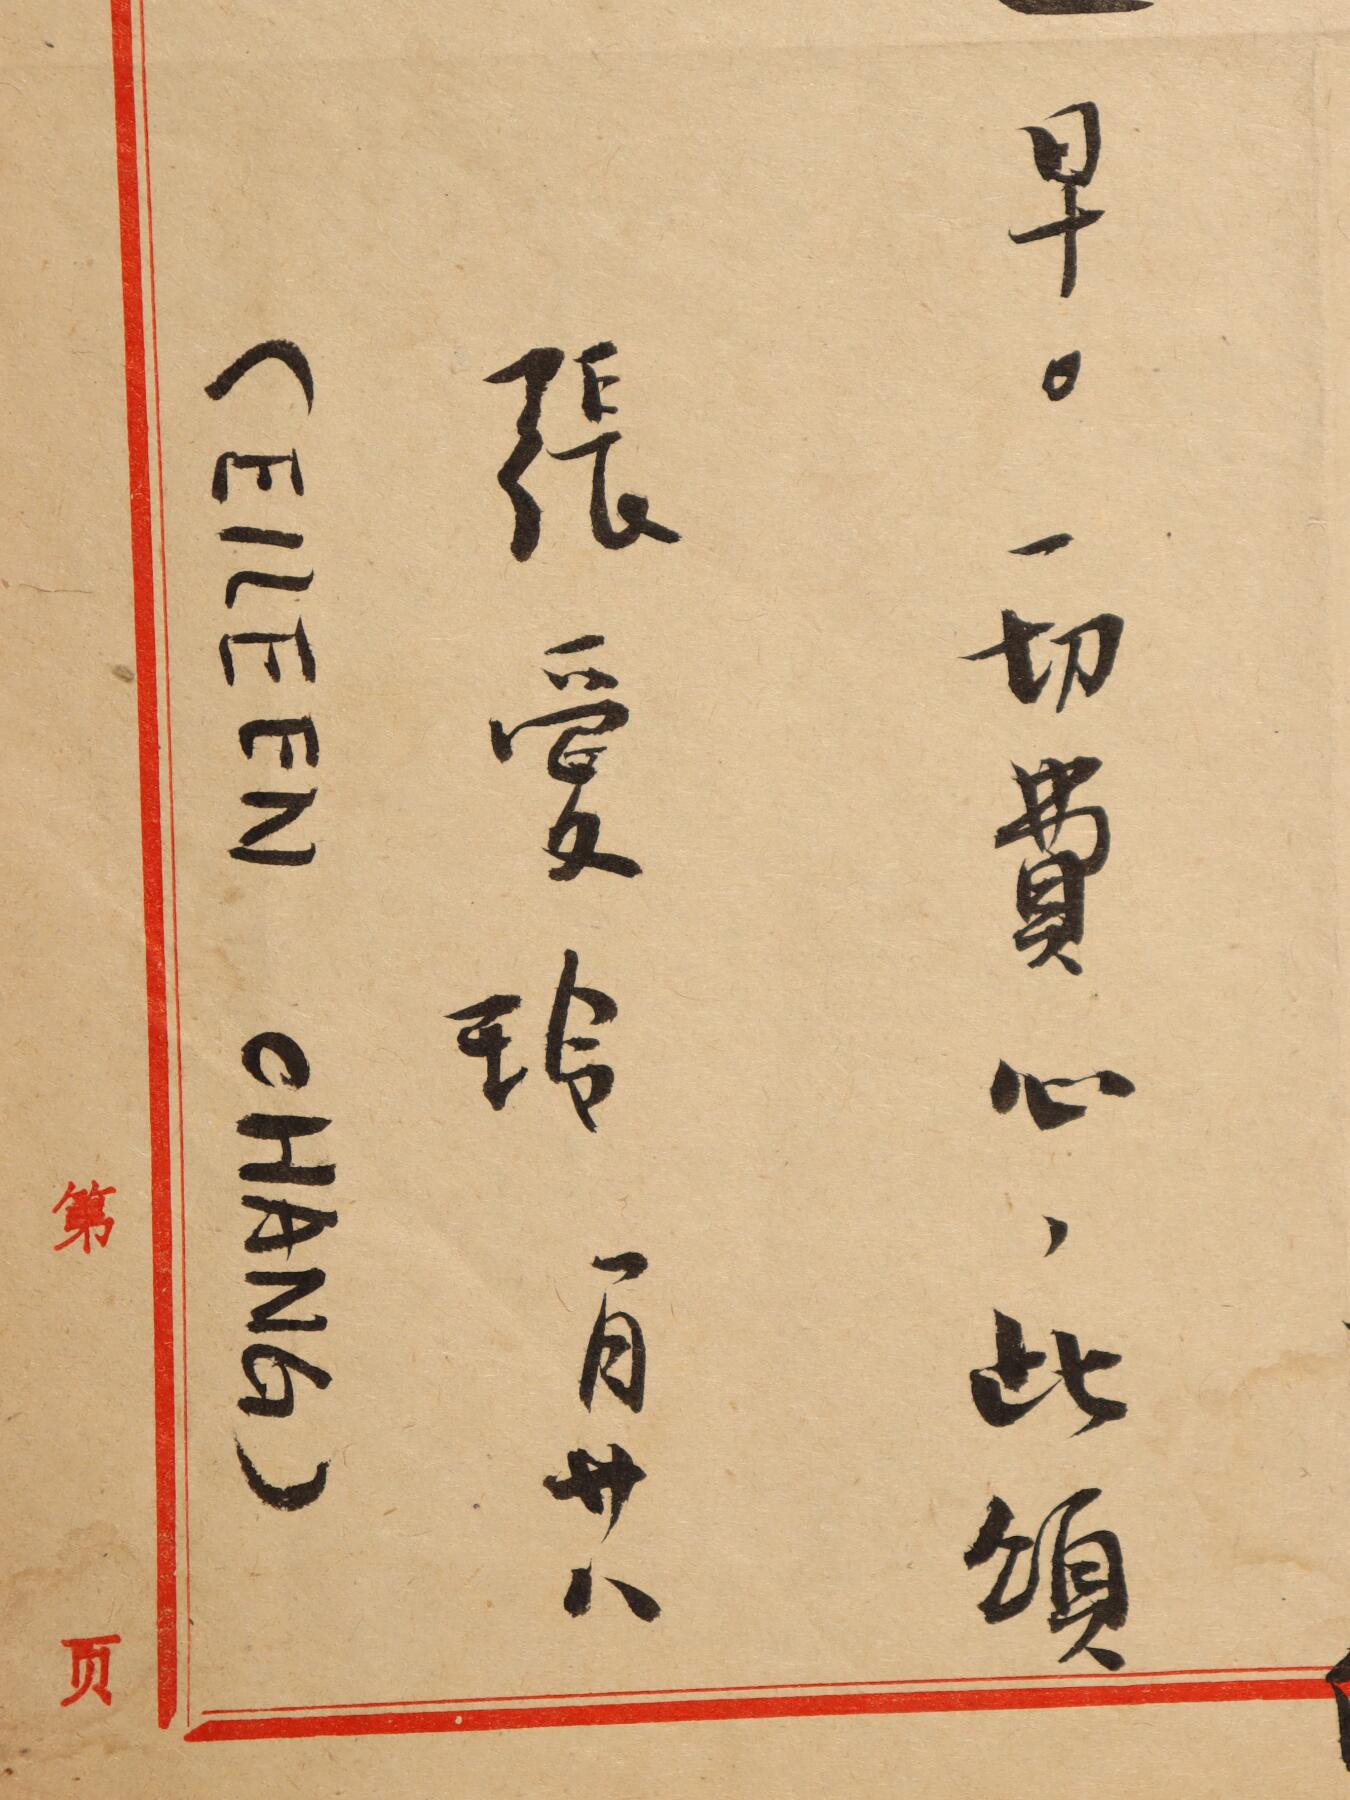 早。一切費心，此頌
張愛玲 一月廿八
(EILEEN CHANG)
第 页